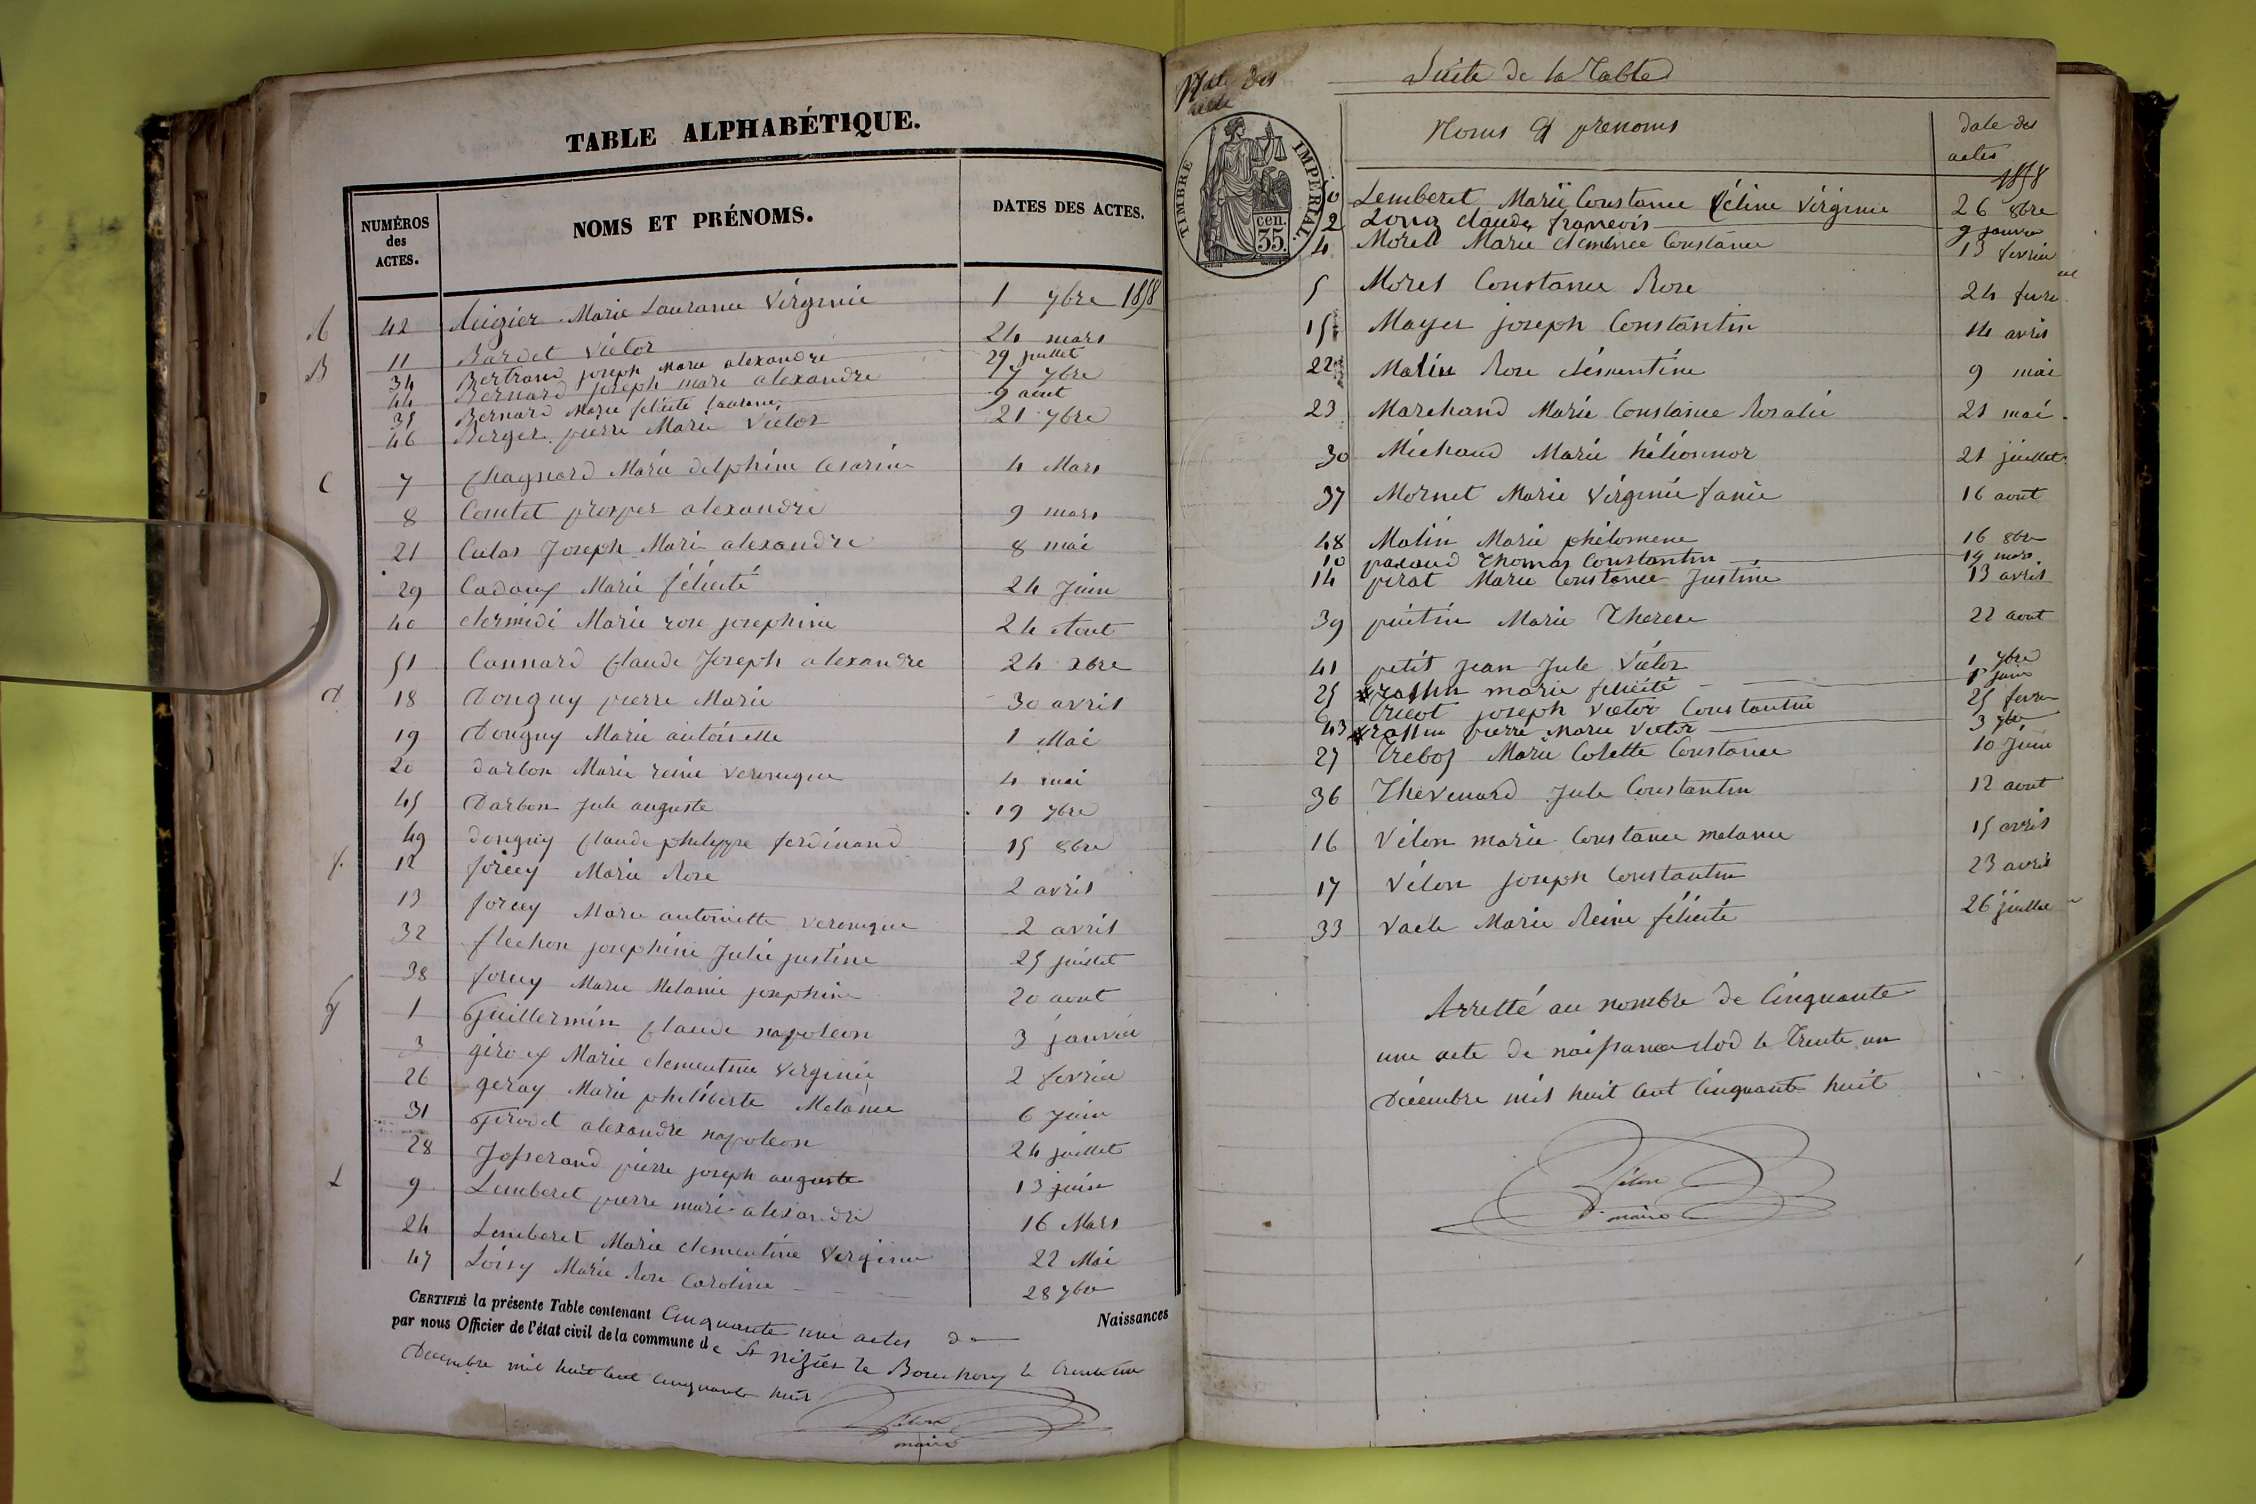 TABLE ALPHABÉTIQUE.
NUMÉROS des ACTES. NOMS ET PRÉNOMS. DATES DES ACTES.
A 42 Augier Marie Lauranne Virginie 1 7bre 1858
B 11 Bardet Victor 24 mars
34 Bertrand joseph Marie alexandre 29 juillet
44 Bernard joseph marie alexandre 17 7bre
35 Bernard Marie félicité laurence 9 aout
46 Berger pierre Marie Victor 21 7bre
C 7 Chagnard Marie delphine Cesarine 4 Mars
8 Comtet prosper alexandre 9 mars
21 Culas Joseph Mari alexandre 8 mai
29 Cadoux Marie félicité 24 Juin
40 clermidi Marie rose josephine 24 Aout
51 Connard Claude Joseph alexandre 24 xbre
d 18 Donguy pierre Marie 30 avril
19 Donguy Marie antoinette 1 Mai
20 darbon Marie reine veronique 4 mai
45 Darbon Jule auguste 19 7bre
49 donguy Claude philippe ferdinand 15 8bre
f. 12 forey Marie Rose 2 avril
13 forey Marie antoinette veronique 2 avril
32 flechon josephine Julie justine 25 juillet
38 forey Marie Melanie josephine 20 aout
G 1 Guillermin Claude napoleon 3 janvier
3 giroux Marie clementine Virginie 2 fevrier
26 geray Marie philiberte Melanie 6 Juin
31 Girodet alexandre napoleon 24 juillet
28 Josserand pierre joseph auguste 13 juin
L 9 Lemberet pierre marie alexandre 16 Mars
24 Lemberet Marie clementine Virginie 22 Mai
47 Loisy Marie Rose Caroline 28 7bre
CERTIFIÉ la présente Table contenant Cinquante une actes de Naissances
par nous Officier de l'état civil de la commune de St nizier le Bouchoux le trente un
Decembre mil huit cent cinquante huit
Vélon
maire
Suite de la Table
des acte Noms & prenoms date des actes
1858
TIMBRE IMPÉRIAL.
35 cen.
50 Lemberet Marie Constance Céline Virginie 26 8bre
2 Long claude francois 9 janvier
4 Morel Marie clemence Constance 13 fevrier
5 Morel Constance Rose 24 fevre
15 Mayer joseph Constantin 14 avril
22 Matin Rose clémentine 9 mai
23 Marchand Marie Constance Rosalie 21 mai
30 Michaud Marie héléonnor 21 juillet
37 Mornet Marie Virginie fanie 16 aout
48 Matin Marie phelomene 16 8bre
10 pacaud Thomas Constantin 14 mars
14 pirat Marie Constance Justine 13 avril
39 puitin Marie Therese 22 aout
41 petit Jean Jule Victor 1 7bre
25 rassin marie felicité 1 juin
6 Tricot joseph Victor Constantin 25 fevrier
43 rassin pierre Marie Victor 3 7bre
27 Treboz Marie Colette Constance 10 Juin
36 Thevenard Jule Constantin 12 aout
16 Vélon marie Constance melanie 15 avril
17 Vélon Joseph Constantin 23 avril
33 Vacle Marie Reine félicité 26 juillet
Arretté au nombre de Cinquante
une acte de naissance clod le Trente un
Décembre mil huit cent cinquante huit
Vélon
maire